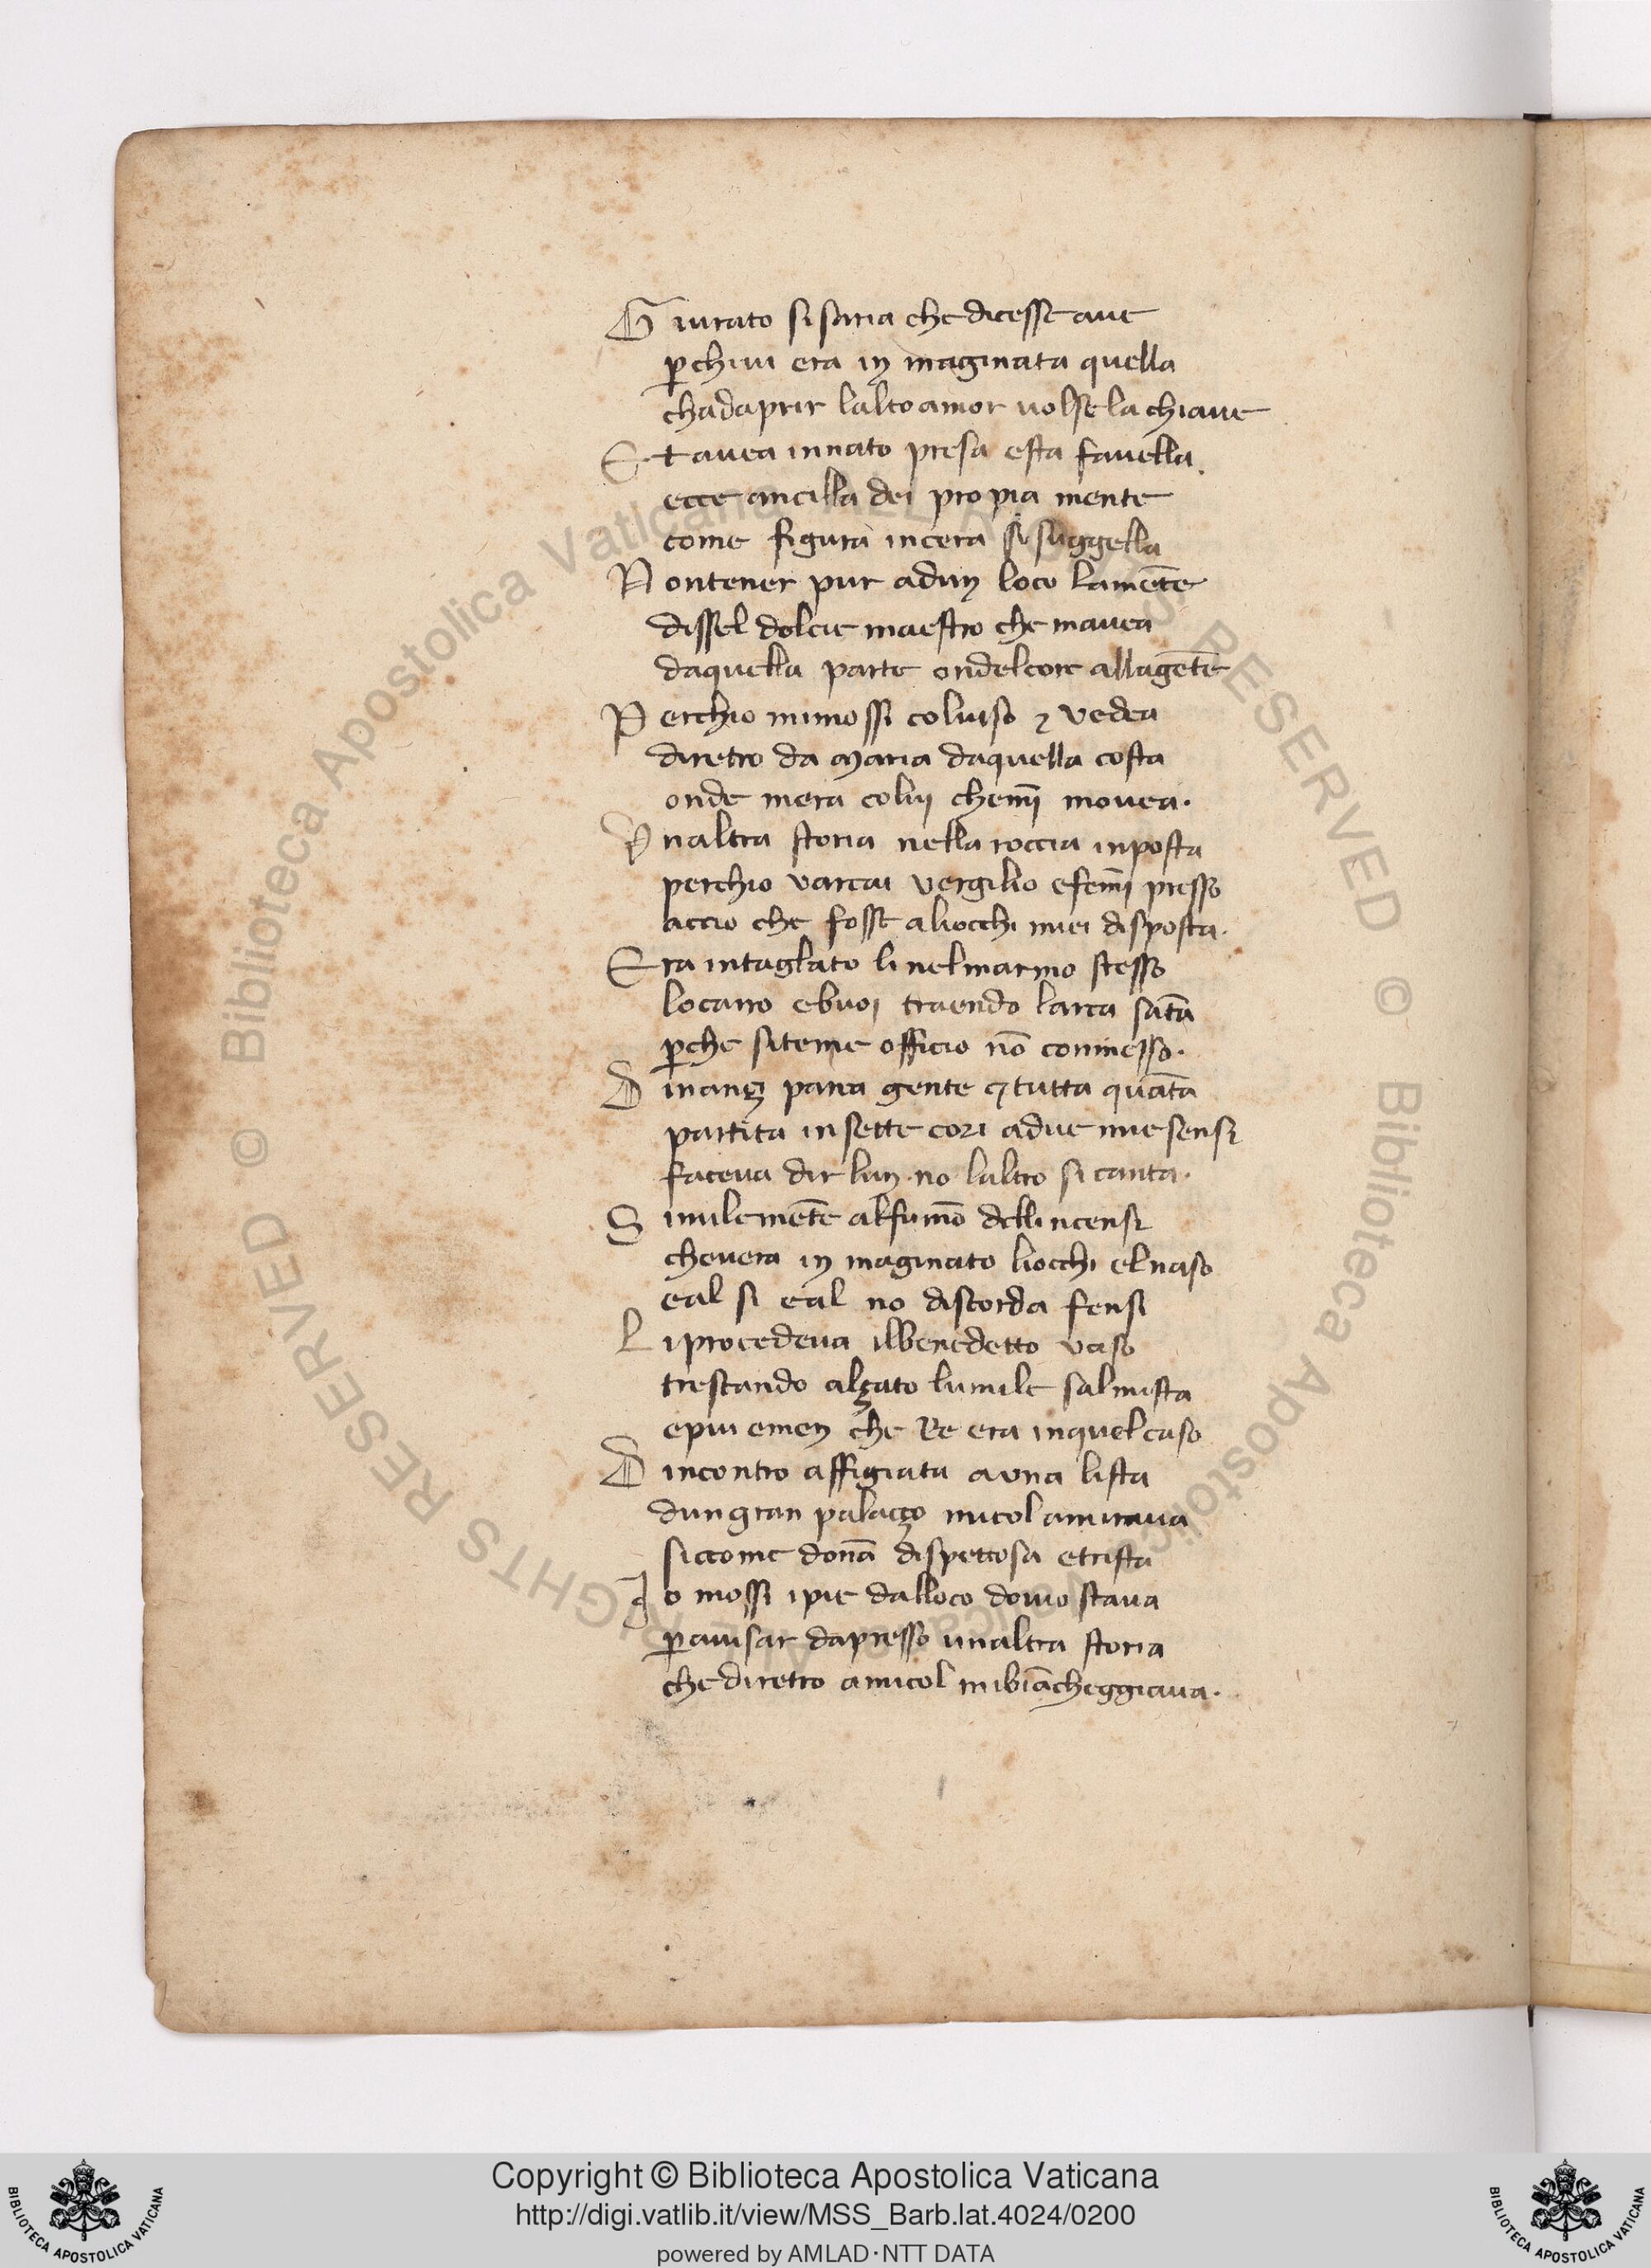 G iurato si saria che dicesse aue
p̲chiui era in maginata quella
chadaprir lalto amor uolse la chiaue
E t auea innato presa esta fauella.
ecce ancilla dei propia mente
come figura incera si suggella
N ontener pur adun loco lamēte
dissel dolcie maestro che mauea
daquella parte ondelcore allagēte
P erchio mimossi coluiso ⁊ vedea
diretro da maria daquella costa
onde mera coluj chemı̄ mouea.
V naltra storia nella roccia inposta
perchio varcai vergilio efemı̄ presso
accio che fosse aliocchi miei disposta.
E ra intaglato li nelmarmo stesso
locarro ebuoj traendo larca sāta
p̲che siteme officio nō commesso.
D inanz paria gente ⁊ tutta quāta
partita in sette cori adue mie sensi
faceua dir lun . no laltro si canta.
S imilemēte alfumō dellincensi
cheuera in maginato liocchi elnaso
eal si eal no discorda fensi
L i procedeua ilbenedetto vaso
trescando alzato lumile salmista
epiu emen che Re era inquelcaso
D incontro affigiata a vna lista
dun gran palaçço micol amiraua
siccome donā dispettosa etrista
I o mossi ipie dalloco douio staua
p̲ auisar dapresso unaltra storia
che diretro amicol mibiācheggiaua.
Copyright © Biblioteca Apostolica Vaticana
http://digi.vatlib.it/view/MSS_Barb.lat.4024/0200
powered by AMLAD·NTT DATA
BIBLIOTECA APOSTOLICA VATICANA
BIBLIOTECA APOSTOLICA VATICANA